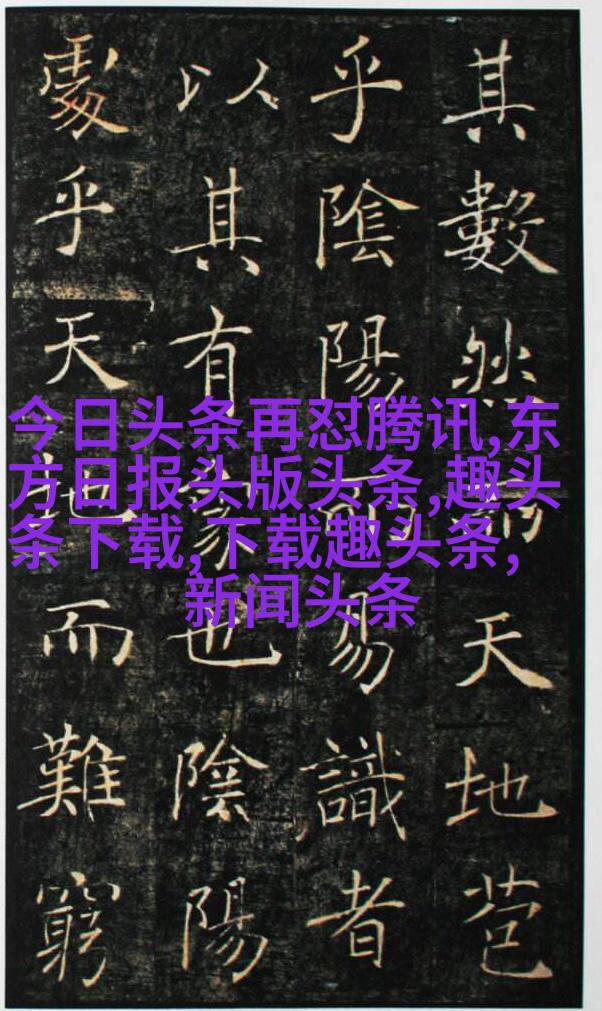 其數然而天地苞
乎陰陽而易識者
以其有象也陰陽
處乎天地而難窮
今日头条再怼腾讯,东
方日报头版头条,趣头
条下载,下载趣头条,
新闻头条